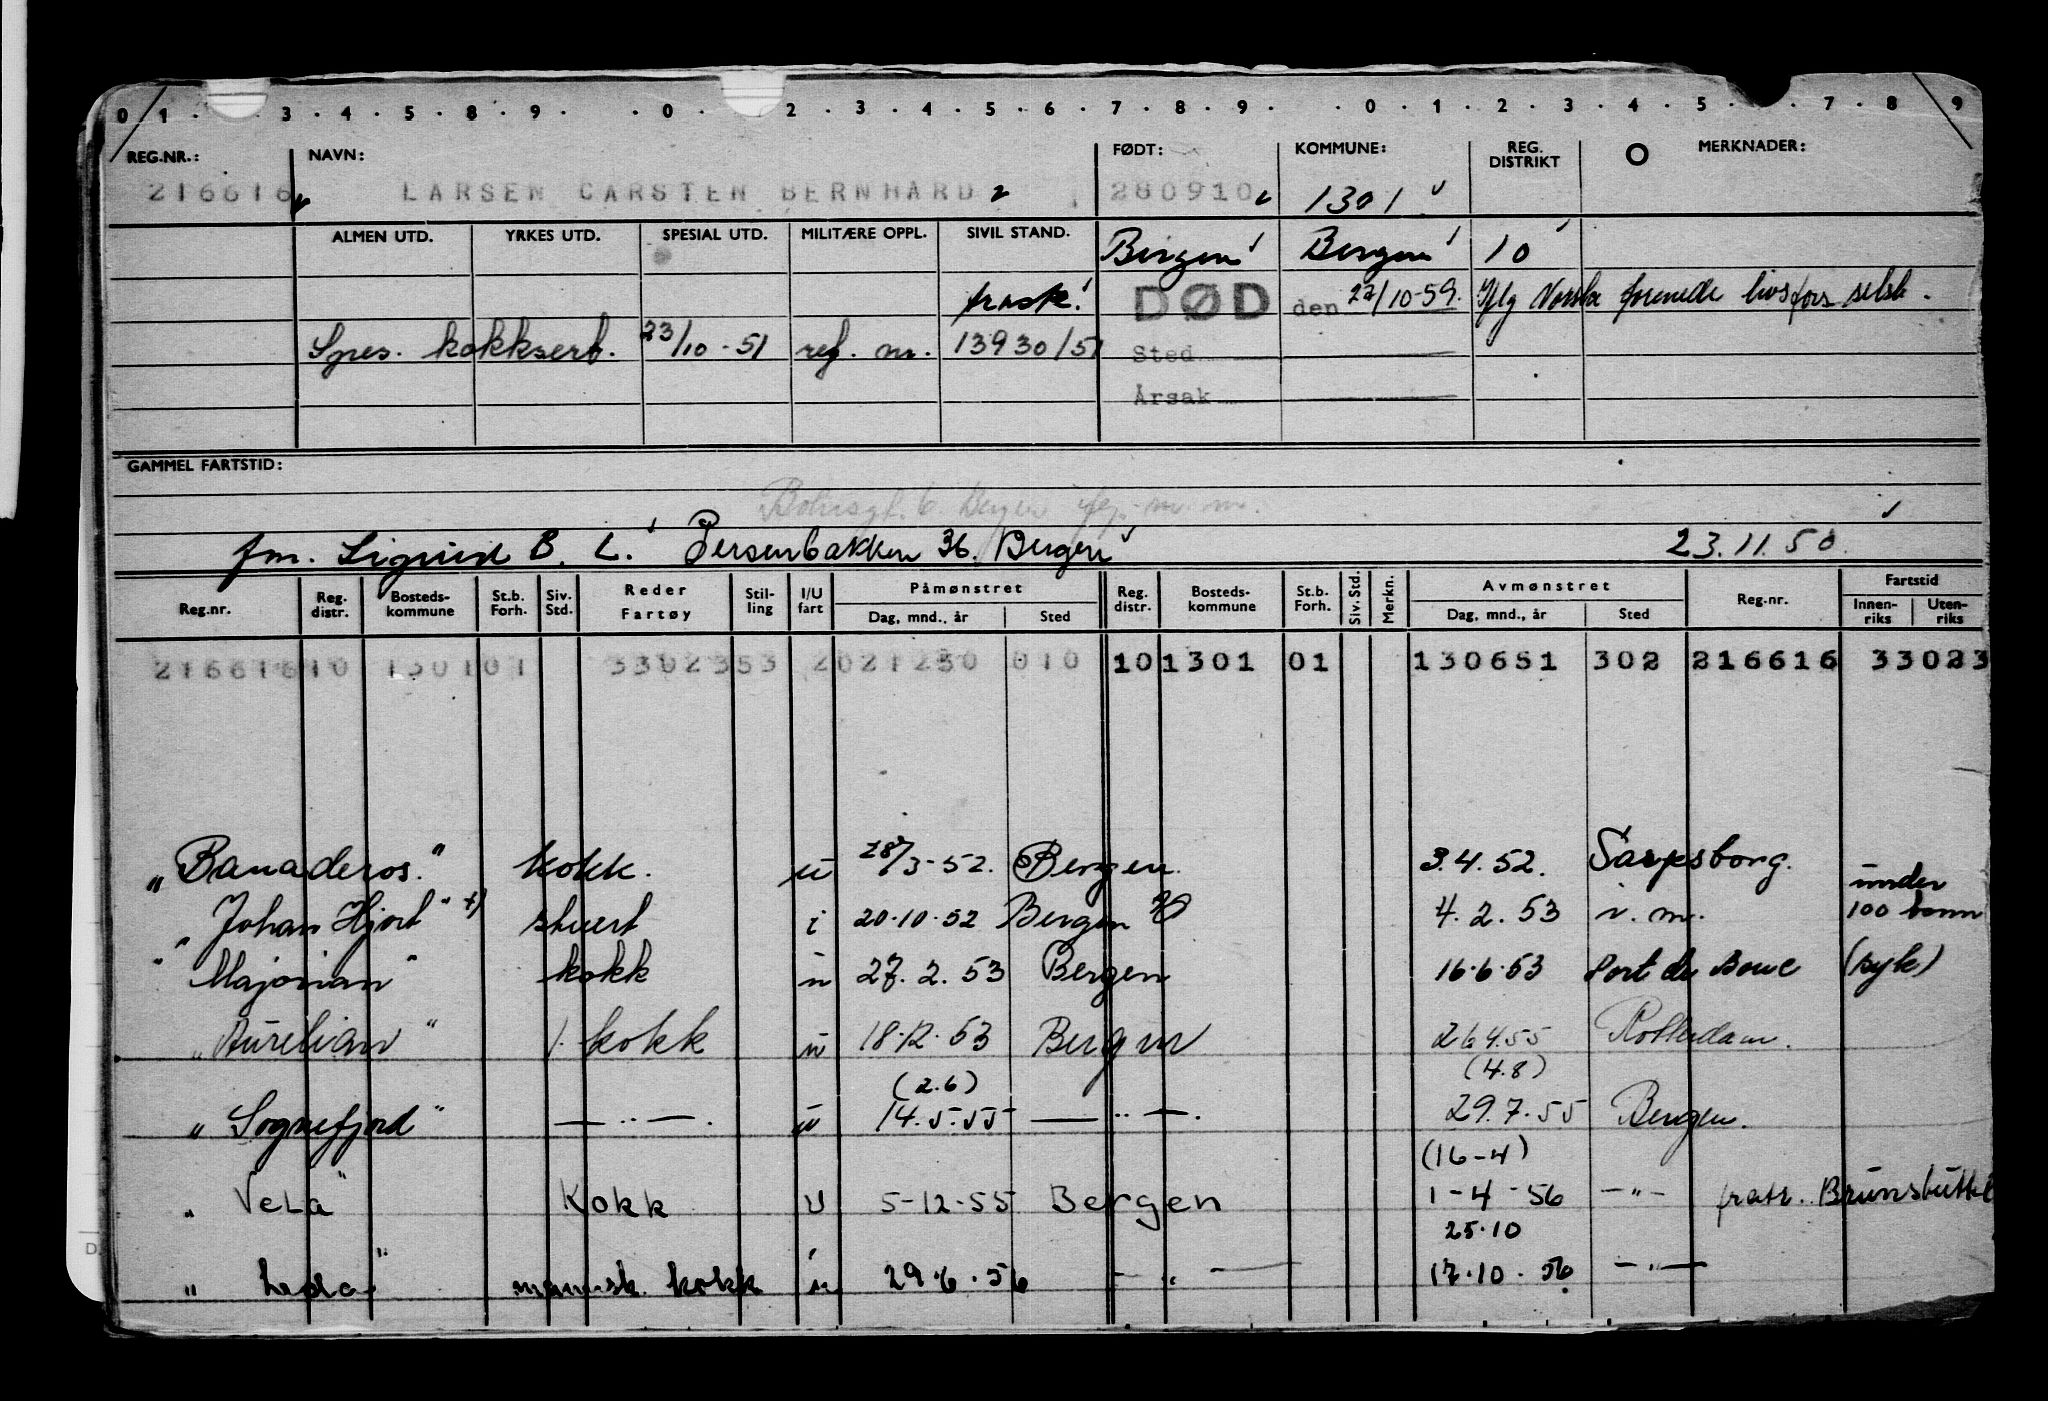 0 1 . . 3 . 4 . 5 . 8 . 9 . . 0 . . 2 . 3 . 4 . 5 . 6 . 7 . 8 . 9 . . 0 . 1 . 2 . 3 . 4 . 5 . . 7 . 8 . 9
REG.NR.: NAVN: FØDT: KOMMUNE: REG. DISTRIKT MERKNADER:
216616 LARSEN CARSTEN BERNHARD 280910 1301
ALMEN UTD. YRKES UTD. SPESIAL UTD. MILITÆRE OPPL. SIVIL STAND. Bergen Bergen 10
frask. DØD den 27/10-59. Iflg Norske forenede livsfors selsk.
Spes. kokksert. 23/10-51 ref. nr. 13930/51 Sted
Årsak
GAMMEL FARTSTID:
6. Bergen
fm. Sigrid B. L. Persenbakken 36. Bergen 23.11.50.
Reg.nr. Reg. distr. Bosteds- kommune St.b. Forh. Siv. Std. Reder Fartøy Stil- ling I/U fart Påmønstret Dag, mnd., år Sted Reg. distr. Bosteds- kommune St.b. Forh. Siv. Std. Merkn. Avmønstret Dag, mnd., år Sted Reg.nr. Fartstid Innen- riks Uten- riks
216616 10 130101 3302353 2021250 010 10 1301 01 130651 302 216616 33023
"Banaderos." kokk. u 28/3-52. Bergen. 3.4.52. Sarpsborg.
under
"Johan Hjort" t) stuert i 20.10.52 Bergen 4.2.53 i. m. 100 tonn
"Majorian" kokk u 27.2.53 Bergen 16.6.53 Port de Bouc (syk)
"Aurelian" 1. kokk u 18.12.53 Bergen 26.4.55 Rotterdam.
(2.6) (4.8)
"Sognefjord" — .. — . u 14.5.55 — .. — . 29.7.55 Bergen.
(16-4)
"Vela" Kokk U 5-12-55 Bergen 1-4-56 — " — fratr. Brunsbüttel
25.10
"Leda" mannsk. kokk u 29.6.56 — " — 17.10.56. — " —